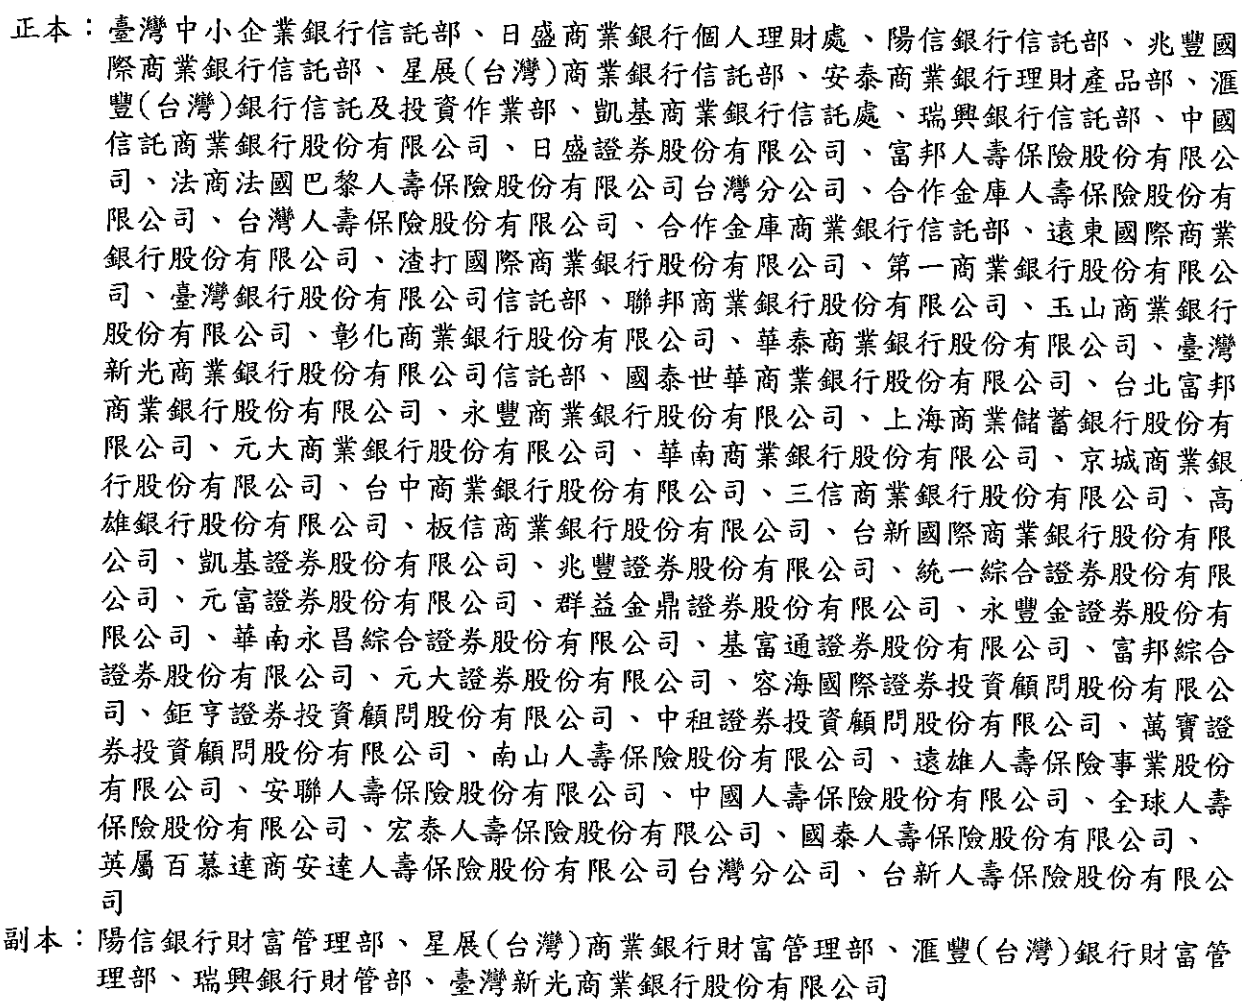 正本：臺灣中小企業銀行信託部、日盛商業銀行個人理財處、陽信銀行信託部、兆豐國
際商業銀行信託部、星展(台灣)商業銀行信託部、安泰商業銀行理財產品部、滙
豐(台灣)銀行信託及投資作業部、凱基商業銀行信託處、瑞興銀行信託部、中國
信託商業銀行股份有限公司、日盛證券股份有限公司、富邦人壽保險股份有限公
司、法商法國巴黎人壽保險股份有限公司台灣分公司、合作金庫人壽保險股份有
限公司、台灣人壽保險股份有限公司、合作金庫商業銀行信託部、遠東國際商業
銀行股份有限公司、渣打國際商業銀行股份有限公司、第一商業銀行股份有限公
司、臺灣銀行股份有限公司信託部、聯邦商業銀行股份有限公司、玉山商業銀行
股份有限公司、彰化商業銀行股份有限公司、華泰商業銀行股份有限公司、臺灣
新光商業銀行股份有限公司信託部、國泰世華商業銀行股份有限公司、台北富邦
商業銀行股份有限公司、永豐商業銀行股份有限公司、上海商業儲蓄銀行股份有
限公司、元大商業銀行股份有限公司、華南商業銀行股份有限公司、京城商業銀
行股份有限公司、台中商業銀行股份有限公司、三信商業銀行股份有限公司、高
雄銀行股份有限公司、板信商業銀行股份有限公司、台新國際商業銀行股份有限
公司、凱基證券股份有限公司、兆豐證券股份有限公司、統一綜合證券股份有限
公司、元富證券股份有限公司、群益金鼎證券股份有限公司、永豐金證券股份有
限公司、華南永昌綜合證券股份有限公司、基富通證券股份有限公司、富邦綜合
證券股份有限公司、元大證券股份有限公司、容海國際證券投資顧問股份有限公
司、鉅亨證券投資顧問股份有限公司、中租證券投資顧問股份有限公司、萬寶證
券投資顧問股份有限公司、南山人壽保險股份有限公司、遠雄人壽保險事業股份
有限公司、安聯人壽保險股份有限公司、中國人壽保險股份有限公司、全球人壽
保險股份有限公司、宏泰人壽保險股份有限公司、國泰人壽保險股份有限公司、
英屬百慕達商安達人壽保險股份有限公司台灣分公司、台新人壽保險股份有限公
司
副本：陽信銀行財富管理部、星展(台灣)商業銀行財富管理部、滙豐(台灣)銀行財富管
理部、瑞興銀行財管部、臺灣新光商業銀行股份有限公司